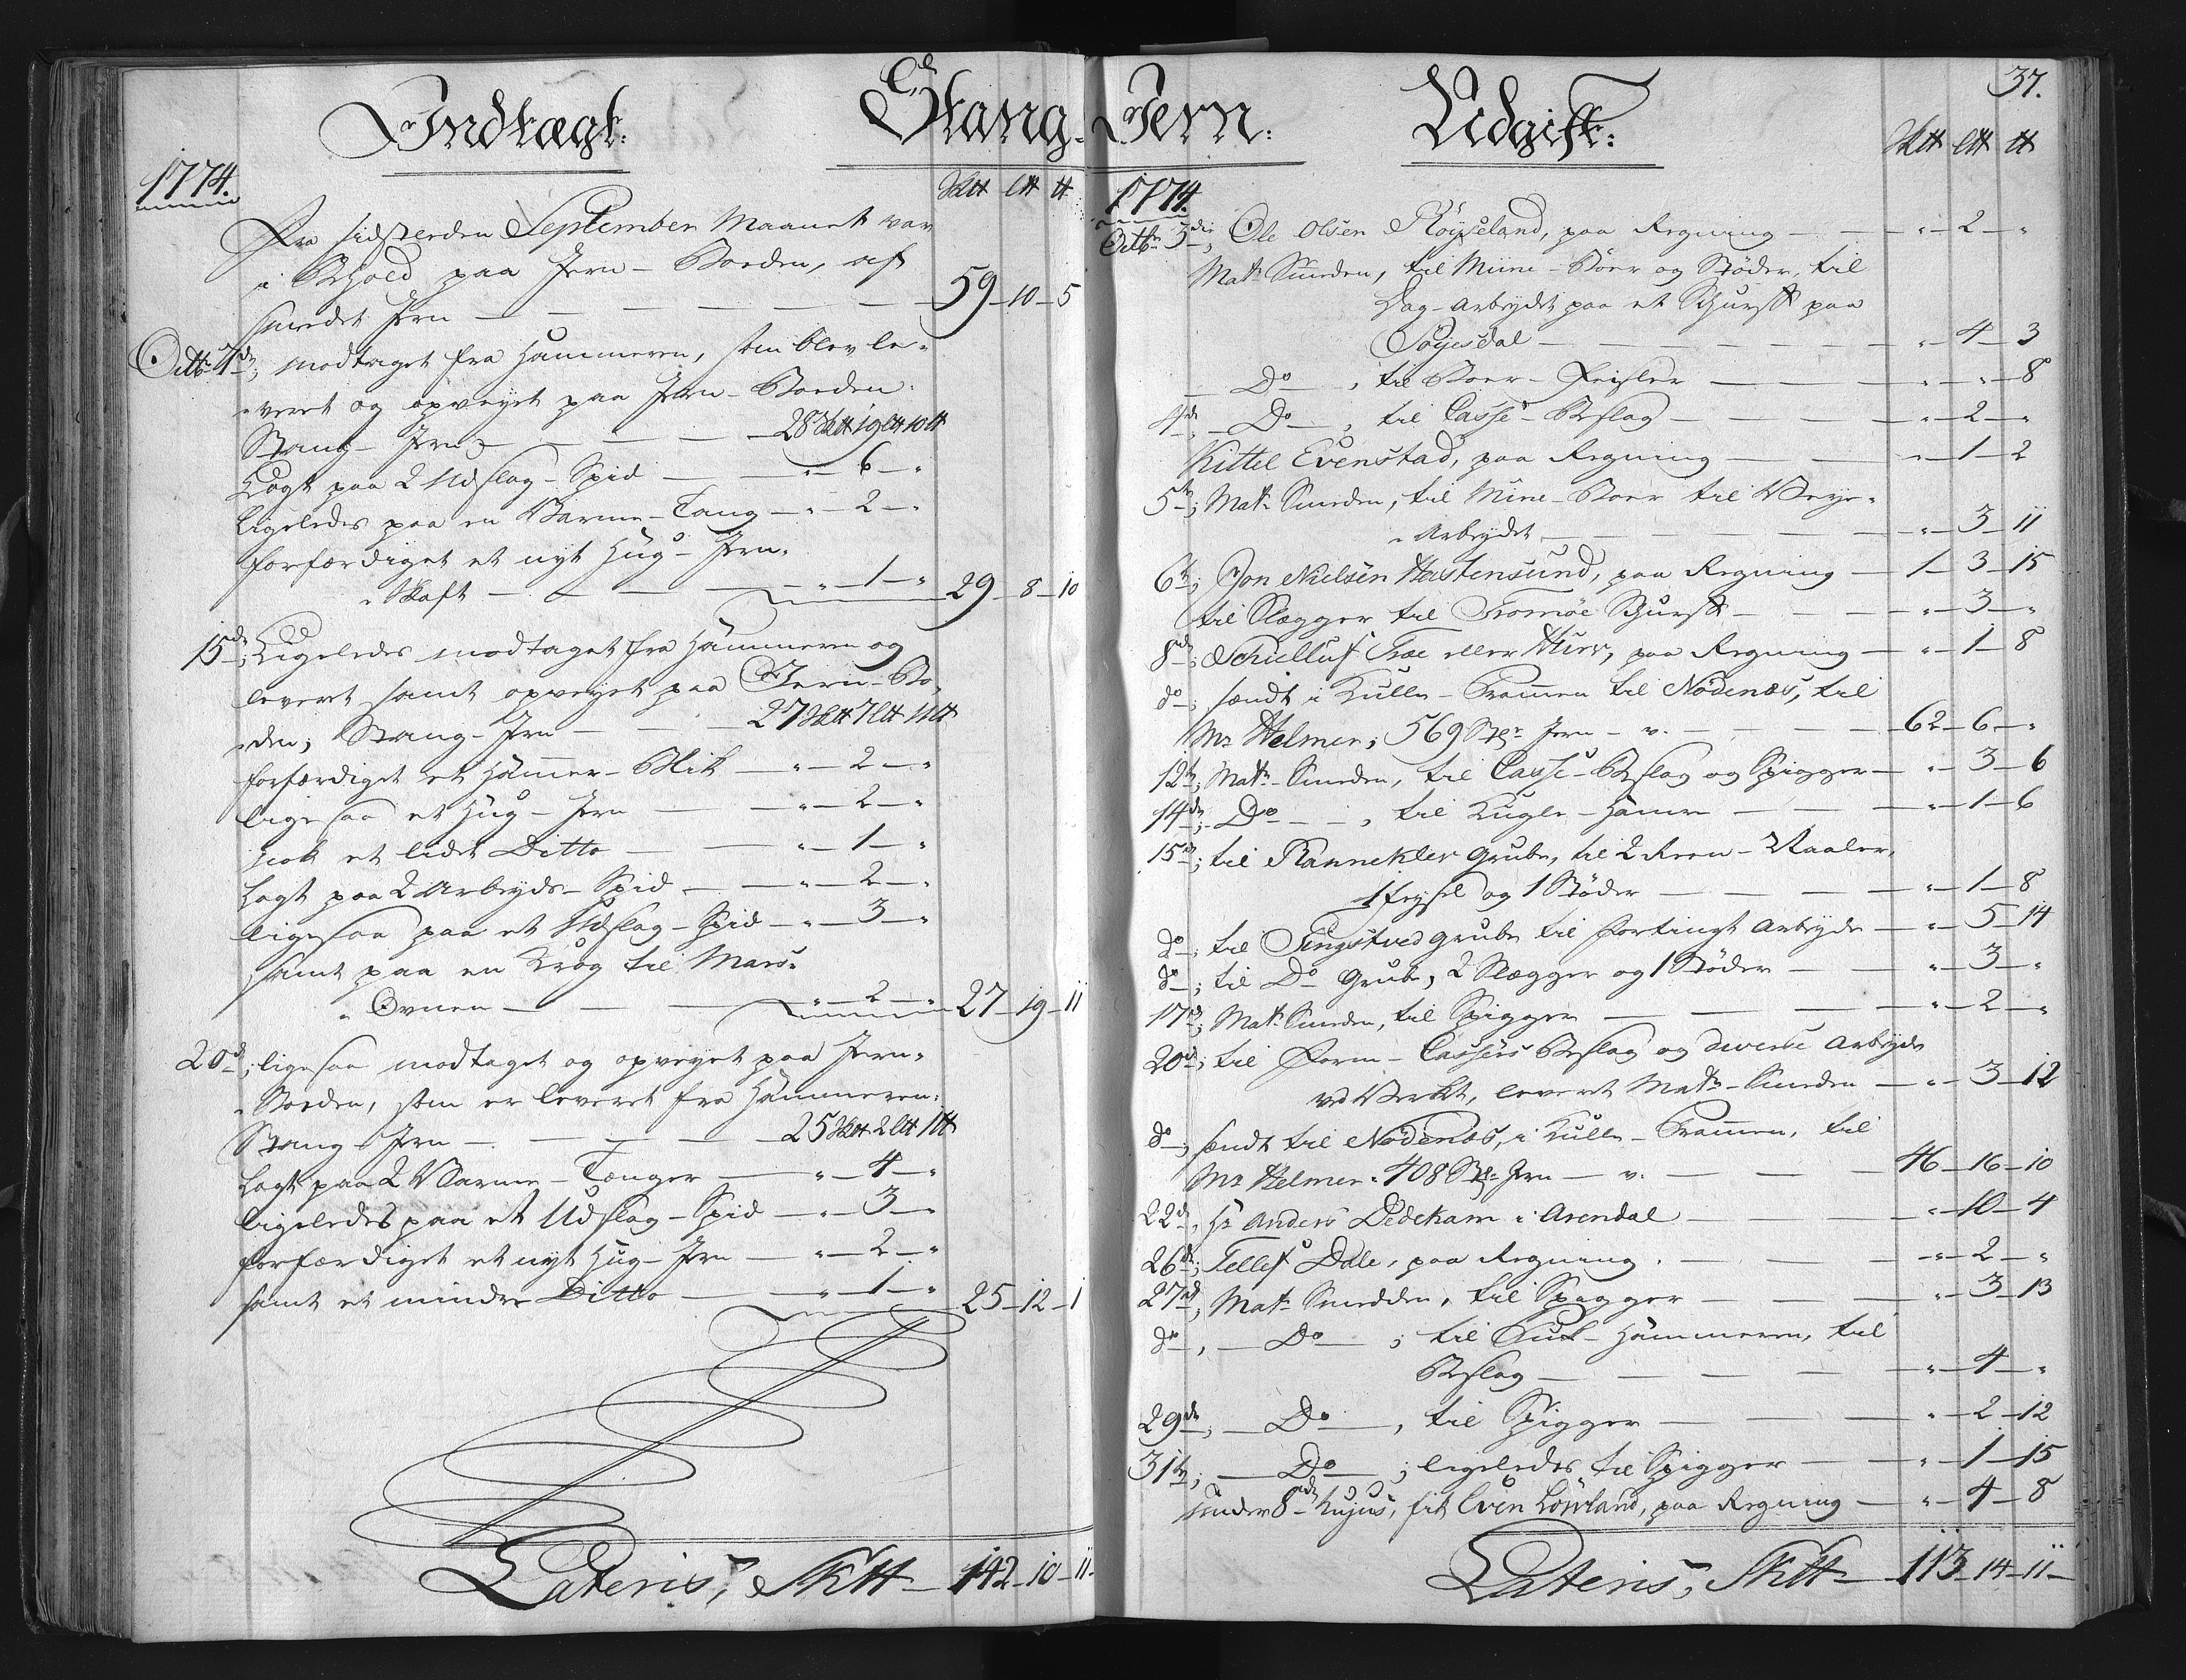 Indtægt:
Stang-
1774.
Sktt Ltt tt
Fra sidstleden September Maanet var
i Behold paa Jern-Boeden, af
smedet Jern — 59 - 10 - 5
Octbr 7de; modtaget fra Hammeren, som blev le-
-veret og opveyet paa Jern-Boeden:
Stang-Jern — 28 Sktt 19 Ltt 10 tt
Lagt paa 2 Udslag-Spid — " - 6 - "
Ligeledes paa en Varme-Tang — " - 2 - "
forfærdiget et nyt Hug-Jern-
-Skaft — " - 1 - " 29 - 8 - 10
15de; Ligeledes modtaget fra Hammeren og
leveret samt opveyet paa Jern-Bo-
-den; Stang-Jern — 27 Sktt 7 Ltt 11 tt
forfærdiget et Hammer-Blik — " - 2 - "
ligesaa et Hug-Jern — " - 2 - "
nok et lidet Ditto — " - 1 - "
Lagt paa 2 Arbeyds-Spid — " - 2 - "
ligesaa paa et Udslag-Spid — " - 3 - "
samt paa en Krog til Mars-
-Ovnen — " - 2 - " 27 - 19 - 11
20de; ligesaa modtaget og opveyet paa Jern-
-Boeden, som er leveret fra Hammeren:
Stang-Jern — 25 Sktt 2 Ltt 1 tt
Lagt paa 2 Varme-Tænger — " - 4 - "
ligeledes paa et Udslag-Spid — " - 3 - "
forfærdiget et nyt Hug-Jern — " - 2 - "
samt et mindre Ditto — " - 1 - " 25 - 12 - 1
Lateris, Sktt - 142 - 10 - 11 -
37.
Jern:
Udgift:
Sktt Ltt tt
1774.
Octbr 3die; Ole Olsen Røyseland, paa Regning — " - 2 - "
Matr Smeden, til Mine-Boer og Støder, til
Dag-Arbeydet paa et Skurff paa
Søyesdal — " - 4 - 3
Do, til Boer-Feisler — " - " - 8
4de; Do, til Casse-Beslag — " - 2 - "
Kittel Evenstad, paa Regning — " - 1 - 2
5te; Matr Smeden, til Mine-Boer til Veye-
-Arbeydet — " - 3 - 11
6te; Jon Nielsen Hastensund, paa Regning — 1 - 3 - 15
til Slægger til Tromøe Skurff — " - 3 - "
8de; Schielluf Træe eller, paa Regning — " - 1 - 8
do; sendt i Kulle-Prammen til Nødenæs, til
Mr Helmer; 569 Stgr Jern - v. — 62 - 6 - "
12te; Matr Smeden, til Casse-Beslag og Spigger — " - 3 - 6
14de; Do, til Kugle-Hamre — " - 1 - 6
15de; til Rannekler Grube, til 2 Krum-Naaler,
1 Feysel og 1 Støder — " - 1 - 8
do; til Tingstved Grube til fortingt Arbeyde — " - 5 - 14
do; til Do Grube, 2 Slægger og 1 Støder — " - 3 - "
17de; Matr Smeden, til Spigger — " - 2 - "
20de; til Form-Cassers Beslag og diverse Arbeyde
ved Verket, leveret Matr Smeden — " - 3 - 12
do; sendt til Nødenæs, i Kulle-Prammen, til
Mr Helmer: 408 Stgr Jern - v. — 46 - 16 - 10
22de, Hr Anders Dedekam i Arendal — " - 10 - 4
26de; Tellef Dale, paa Regning. — " - 2 - "
27de, Matr Smedden, til Spigger — " - 3 - 13
do, Do; til Puk-Hammeren, til
Beslag — " - 4 - "
29de; Do, til Spigger — " - 2 - 12
31te; Do; ligeledes til Spigger — " - 1 - 15
under 8de hujus, fik Even Løvland, paa Regning — " - 4 - 8
Lateris, Sktt - 113 - 14 - 11 -